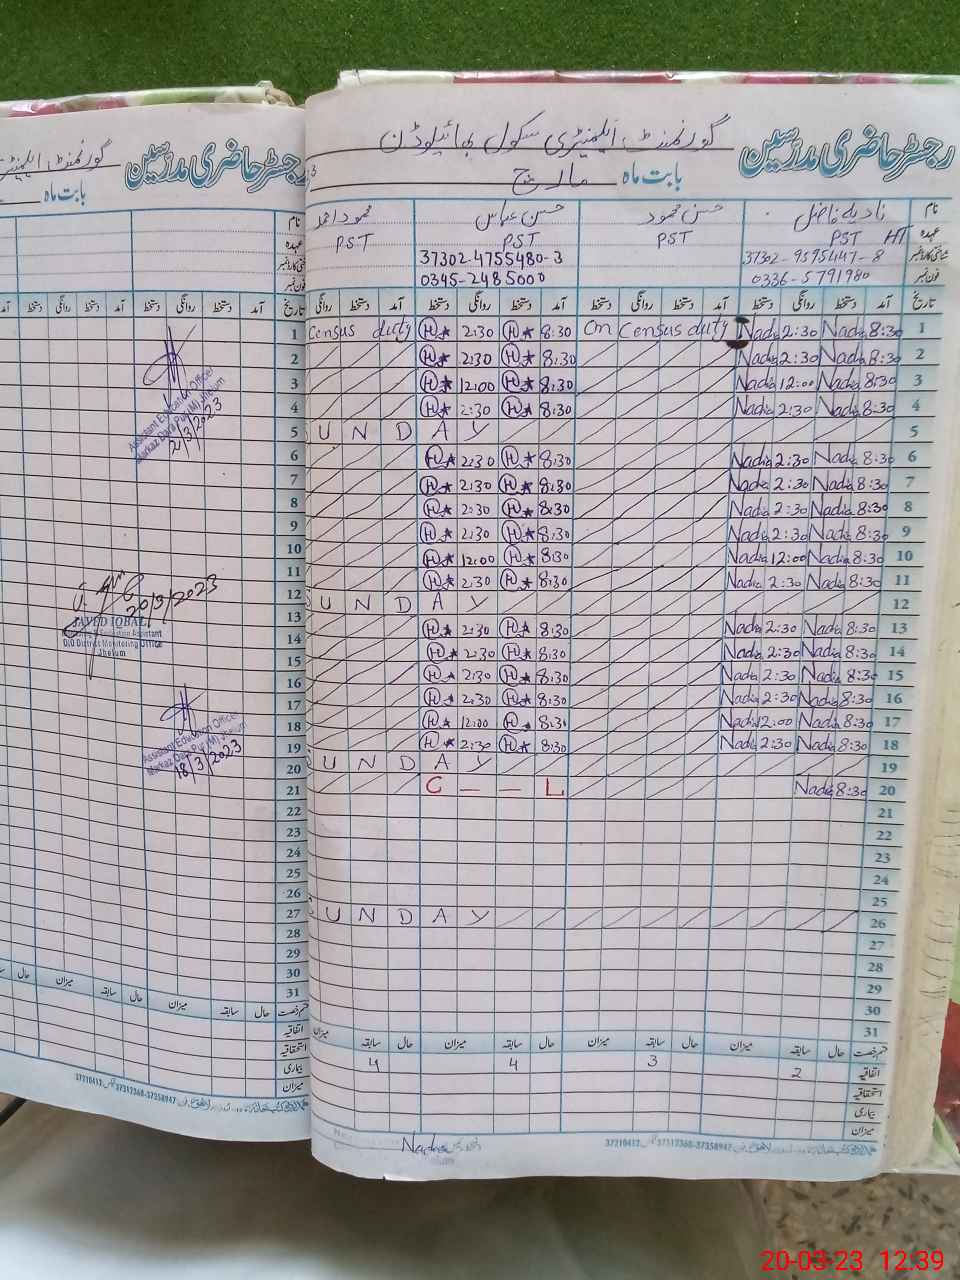 رجسٹر حاضری مدرسین گورنمنٹ ایلیمنٹری سکول
بابت ماہ مارچ
نام نادیہ فاضل حسن محمود حسن عباس محمود احمد
عہدہ PST HT PST PST PST
شناختی کارڈ نمبر 37302-9595447-8 37302-4755480-3
فون نمبر 0336-5791980 0345-2485000
تاریخ آمد دستخط روانگی دستخط آمد دستخط روانگی دستخط آمد دستخط روانگی دستخط آمد دستخط روانگی دستخط
1 8:30 Nadia 2:30 Nadia On Census duty 8:30 2:30 Census duty
2 8:30 Nadia 2:30 Nadia 8:30 2:30
3 8:30 Nadia 12:00 Nadia 8:30 12:00
4 8:30 Nadia 2:30 Nadia 8:30 2:30
5 SUNDAY
6 8:30 Nadia 2:30 Nadia 8:30 2:30
7 8:30 Nadia 2:30 Nadia 8:30 2:30
8 8:30 Nadia 2:30 Nadia 8:30 2:30
9 8:30 Nadia 2:30 Nadia 8:30 2:30
10 8:30 Nadia 12:00 Nadia 8:30 12:00
11 8:30 Nadia 2:30 Nadia 8:30 2:30
12 SUNDAY
13 8:30 Nadia 2:30 Nadia 8:30 2:30
14 8:30 Nadia 2:30 Nadia 8:30 2:30
15 8:30 Nadia 2:30 Nadia 8:30 2:30
16 8:30 Nadia 2:30 Nadia 8:30 2:30
17 8:30 Nadia 12:00 Nadia 8:30 12:00
18 8:30 Nadia 2:30 Nadia 8:30 2:30
19 SUNDAY
20 8:30 Nadia C — — L
21
22
23
24
25
26 SUNDAY
27
28
29
30
31
قسم رخصت حال سابقہ میزان حال سابقہ میزان حال سابقہ میزان حال سابقہ میزان
اتفاقیہ 2 3 4 4
استحقاقیہ
بیماری
میزان
37210412 37312368-37358947
Nadia
رجسٹر حاضری مدرسین
بابت ماہ
نام
عہدہ
شناختی کارڈ نمبر
فون نمبر
تاریخ آمد دستخط روانگی دستخط آمد دستخط روانگی دستخط آمد
1
2
3
4
5
6
7
8
9
10
11
12
13
14
15
16
17
18
19
20
21
22
23
24
25
26
27
28
29
30
31
Assistant Education Officer
Markaz Dara Pur (M) Jhelum
2/3/2023
20/3/2023
JAVED IQBAL
Monitoring & Evaluation Assistant
O/O District Monitoring Office
Jhelum
Assistant Education Officer
Markaz Dara Pur (M) Jhelum
18/3/2023
قسم رخصت حال سابقہ میزان حال سابقہ میزان حال
اتفاقیہ
استحقاقیہ
بیماری
میزان
37210412 37312368-37358947
20-03-23 12.39